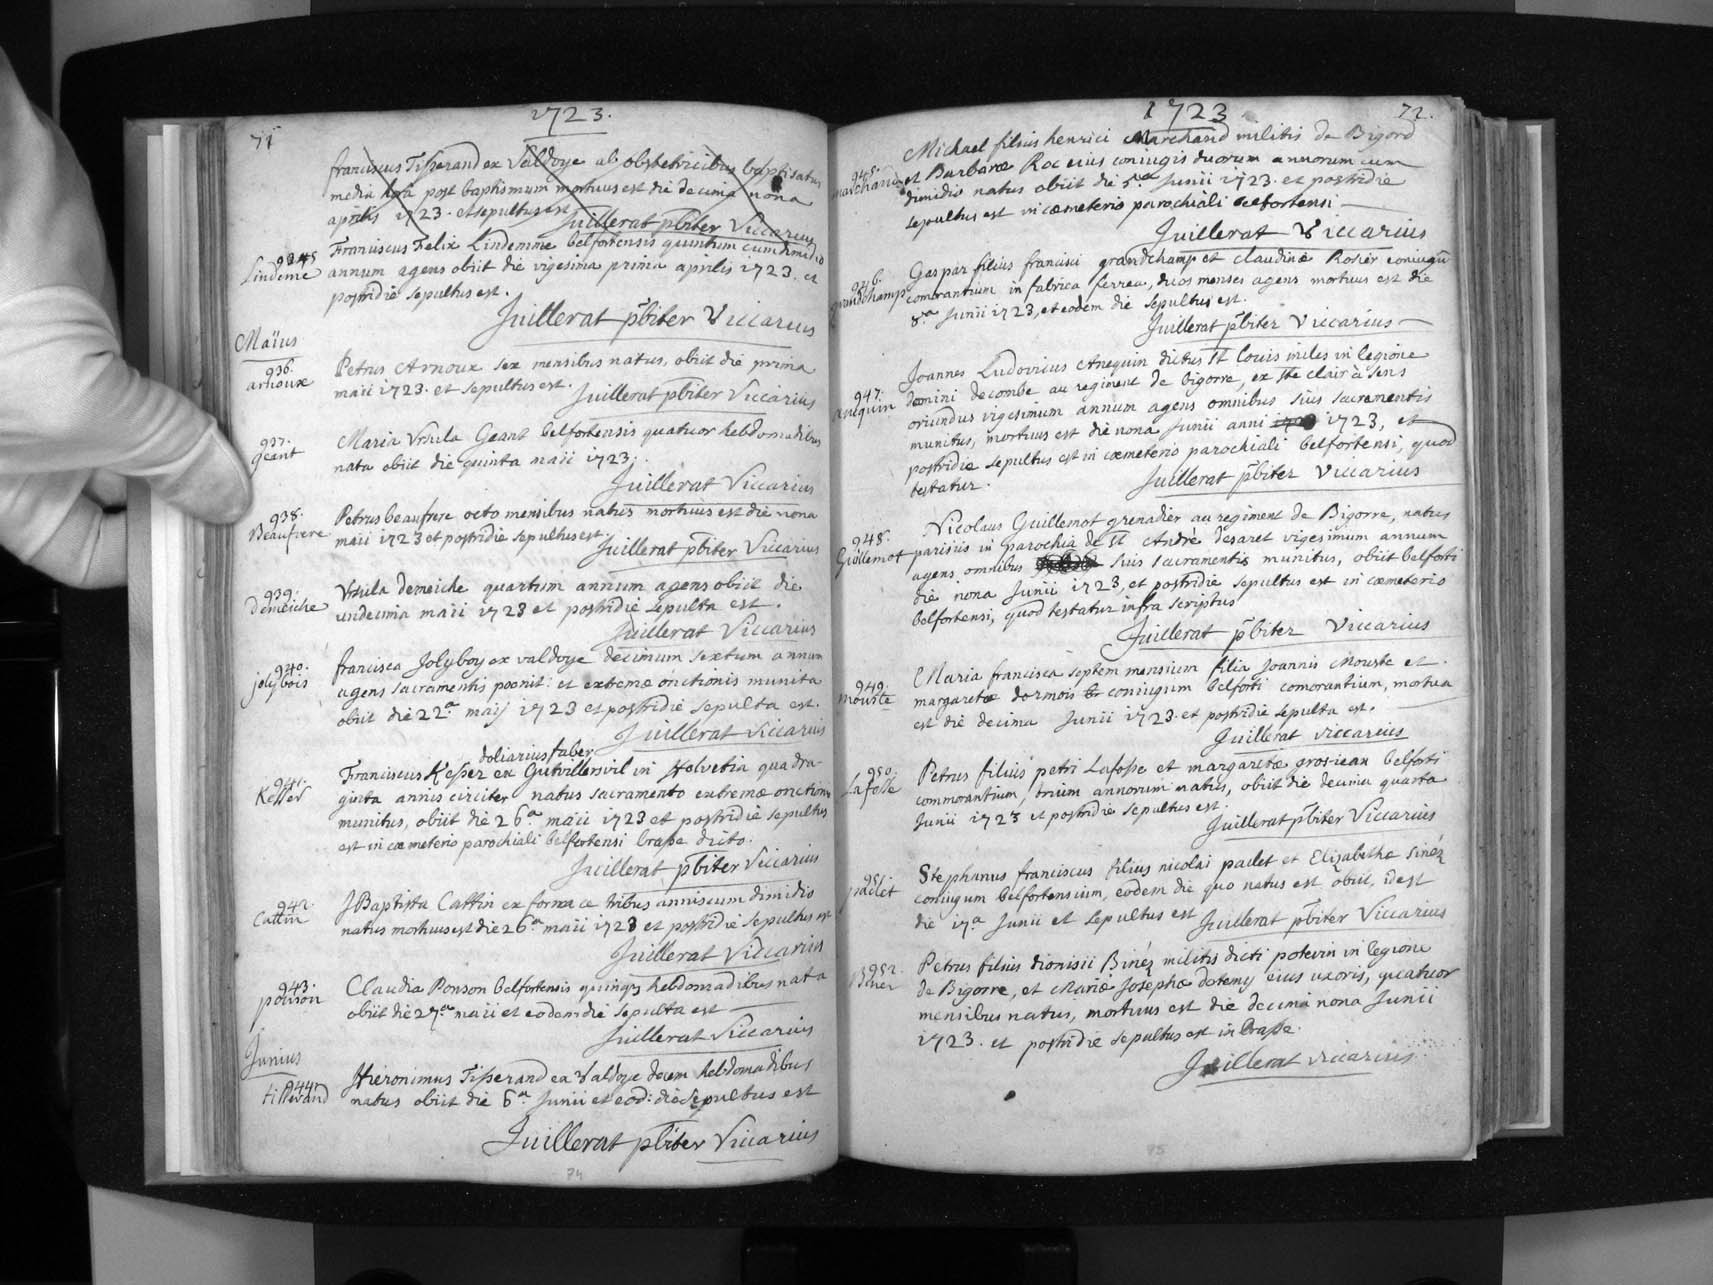 71
1723.
franciscus Tisserand ex Valdoye ab obstetricibus baptisatus
media hora post baptismum mortuus est die decima nona
aprilis 1723. et sepultus est
Juillerat pbiter Viccarius
935
Lindeme
Franciscus Felix Lindemme belfortensis quintum cum dimidio
annum agens obiit die vigesima prima aprilis 1723. et
postridie sepultus est.
Juillerat pbiter Viccarius
Maïus
936.
arnoux
Petrus Arnoux sex mensibus natus, obiit die prima
maii 1723. et sepultus est.
Juillerat pbiter Viccarius
937.
geant
Maria Vrsula Geant belfortensis quatuor hebdomadibus
nata obiit die quinta maii 1723.
Juillerat Viccarius
938.
Beaufrere
Petrus beaufrere octo mensibus natus mortuus est die nona
maii 1723 et postridie sepultus est.
Juillerat pbiter Viccarius
939.
Demeiche
Vrsula demeiche quartum annum agens obiit die
undecima maii 1723 et postridie sepulta est.
Juillerat Viccarius
940.
jolybois
francisca Jolyboy ex valdoye decimum sextum annum
agens sacramentis poenit: et extremæ onctionis munita
obiit die 22.a maij 1723 et postridie sepulta est.
Juillerat Viccarius
941.
Kesser
doliarius faber
Franciscus Kesser ex Gutvillersvil in Helvetia quadra-
ginta annis circiter natus sacramento extremæ onctionis
munitus, obiit die 26.a maii 1723 et postridie sepultus
est in cœmeterio parochiali belfortensi brasse dicto.
Juillerat pbiter Viccarius
942.
Cattin
J Baptista Cattin ex tribus annis cum dimidio
natus mortuus est die 26.a maii 1723 et postridie sepultus est
Juillerat Viccarius
943.
ponson
Claudia Ponson belfortensis quinq3 hebdomadibus nata
obiit die 27.a maii et eodem die sepulta est
Juillerat Viccarius
Junius
944
tisserand
Hieronimus Tisserand ex Valdoye decem hebdomadibus
natus obiit die 6.a Junii et eod: die sepultus est
Juillerat pbiter Viccarius
74
1723
72.
945.
marchand
Michael filius henrici Marchand militis de Bigord
et Barbaræ Roc eius coniugis duorum annorum cum
dimidio natus obiit die 5.a Junii 1723. et postridie
sepultus est in cœmeterio parochiali belfortensi
Juillerat Viccarius
946.
grandchamp
Gaspar filius francisci grandchamp et claudinæ Rosier coniugū
comorantium in fabrica ferrea, duos menses agens mortuus est die
8.a Junii 1723, et eodem die sepultus est.
Juillerat pbiter Viccarius
947.
anequin
Joannes Ludovicus Anequin dictus St Louis miles in legione
domini decombe au regiment de bigorre, ex Ste clair à sens
oriundus vigesimum annum agens omnibus suis sacramentis
munitus, mortuus est die nona Junii anni 1723, et
postridie sepultus est in cœmeterio parochiali belfortensi, quod
testatur.
Juillerat pbiter Viccarius
948.
Guillemot
Nicolaus Guillemot grenadier au regiment de Bigorre, natus
parisiis in parochia de St André desaret vigesimum annum
agens omnibus suis sacramentis munitus, obiit belforti
die nona Junii 1723, et postridie sepultus est in cœmeterio
belfortensi, quod testatur infra scriptus
Juillerat pbiter Viccarius
949.
mouste
Maria francisca septem mensium filia Joannis Mouste et
margaretæ dormois coniugum belforti comorantium, mortua
est die decima Junii 1723. et postridie sepulta est.
Guillerat viccarius
950.
Lafosse
Petrus filius petri Lafosse et margaritæ grosiean belforti
commorantium, trium annorum natus, obiit die decima quarta
Junii 1723 et postridie sepultus est.
Guillerat pbiter Viccarius
951.
paclet
Stephanus franciscus filius nicolai paclet et Elizabethæ Sinéz
coniugum belfortensium, eodem die quo natus est obiit, id est
die 17.a Junii et sepultus est
Juillerat pbiter Viccarius
952.
Biner
Petrus filius dionisii Binéz militis dicti potevin in legione
de Bigorre, et Mariæ Josephæ dotemy eius uxoris, quatuor
mensibus natus, mortuus est die decima nona Junii
1723. et postridie sepultus est in brasse.
Juillerat viccarius
75